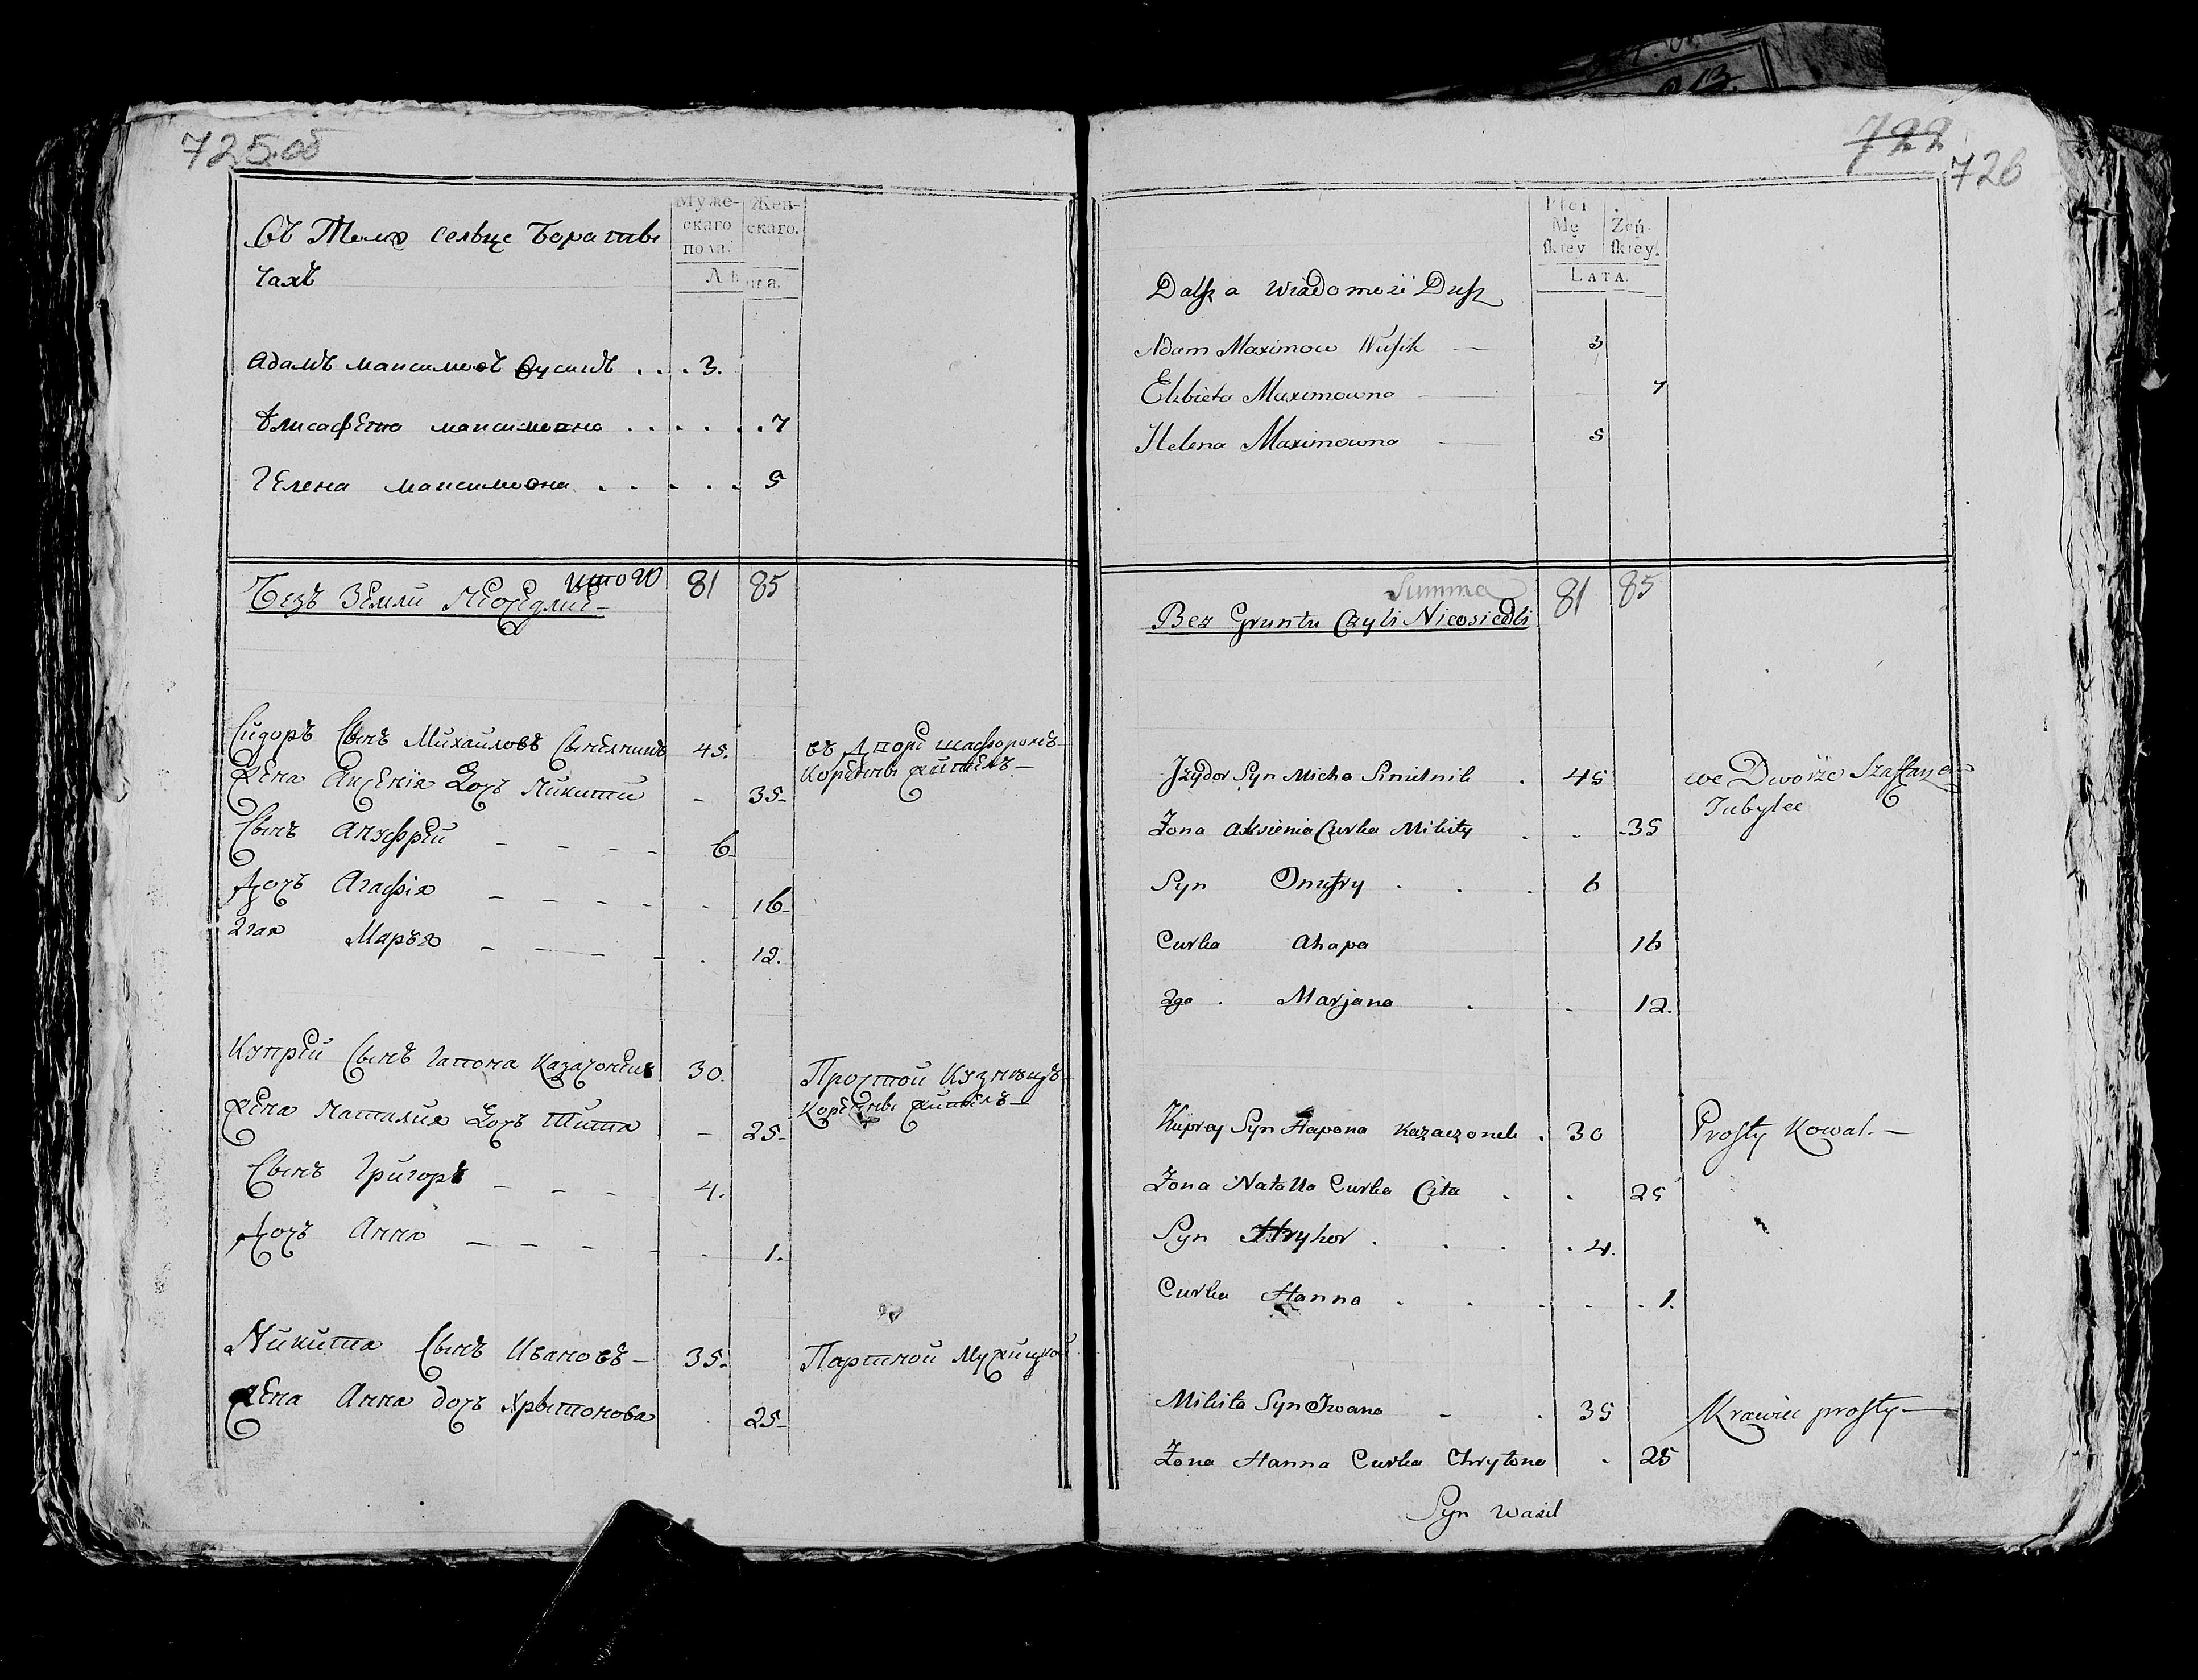 725.об
Въ Томъ сельце Бораты
чахъ
Муже-
скаго
пола.
Жен-
скаго.
Лѣта.
Адамъ Максимовъ Вусикъ . . . 3.
Элисафета Максимовна . . . . . . 7
Гелена Максимовна . . . . . 5
Итого 81 85
Безъ Земли
Сидоръ Сынъ Михайловъ 45. въ Дворе шафоромъ
Жена Аксенія Дочь Микиты - 35- Коренны житель-
Сынъ Ануфрій - - - - 6-
Дочь Агафія - - - - - 16-
2гая Марья - - - - . 12.
Купрій Сынъ Гапона Казачонекъ 30. Простой Кузнецъ
Жена Наталия Дочь Тита - 25- Коренны житель-
Сынъ Григоръ - - - 4.
Дочь Анна - - - - . 1.
Микита Сынъ Ивановъ- 35. Портной
Жена Анна дочь Хрытонова 25-
722
726
Płci
Mę
skiey
Żeń-
skiey.
LATA.
Dalsza Wiadomość Dusz
Adam Maximow Wusik — 3
Elzbieta Maximowna — 7
Helena Maximowna — 5
Summa 81 85
Bez Gruntu Czyli Nieosiedli
Jzydor Syn Micha Sinielnik . 45 we Dworze Szaffarzem
Żona Aksienia Curka Mikity . - -35 Tubylec
Syn Onufry . . . 6
Curka Ahapa 16
2ga . Marjana . - 12.
Kuprey Syn Hapona Kazaczonek . 30 Prosty Kowal. —
Żona Natalla Curka Cita . . 25
Syn Hryhor . . . . 4.
Curka Hanna . . . . . 1.
Mikita Syn Iwana - . 35 Krawiec prosty —
Żona Hanna Curka Chrytona . 25
Syn Wasil